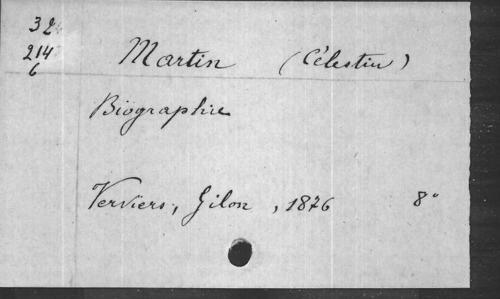 32
214
6
Martin (Célestin)
Biographie
Verviers, Gilon, 1876 8°